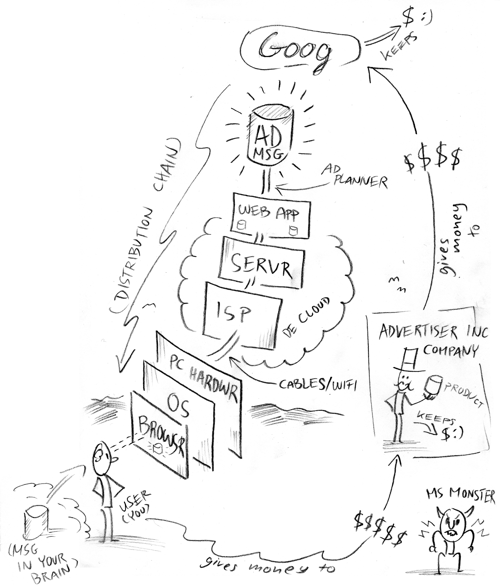 $ :)
KEEPS
GOOG
AD
MSG
AD
PLANNER
$$$$
gives money to
(DISTRIBUTION CHAIN)
WEB APP
SERVR
ISP
DE CLOUD
CABLES/WIFI
PC HARDWR
OS
BROWSR
ADVERTISER INC
COMPANY
PRODUCT
KEEPS
$:)
USER
(YOU)
(MSG
IN YOUR
BRAIN)
gives money to
$$$$$
MS MONSTER